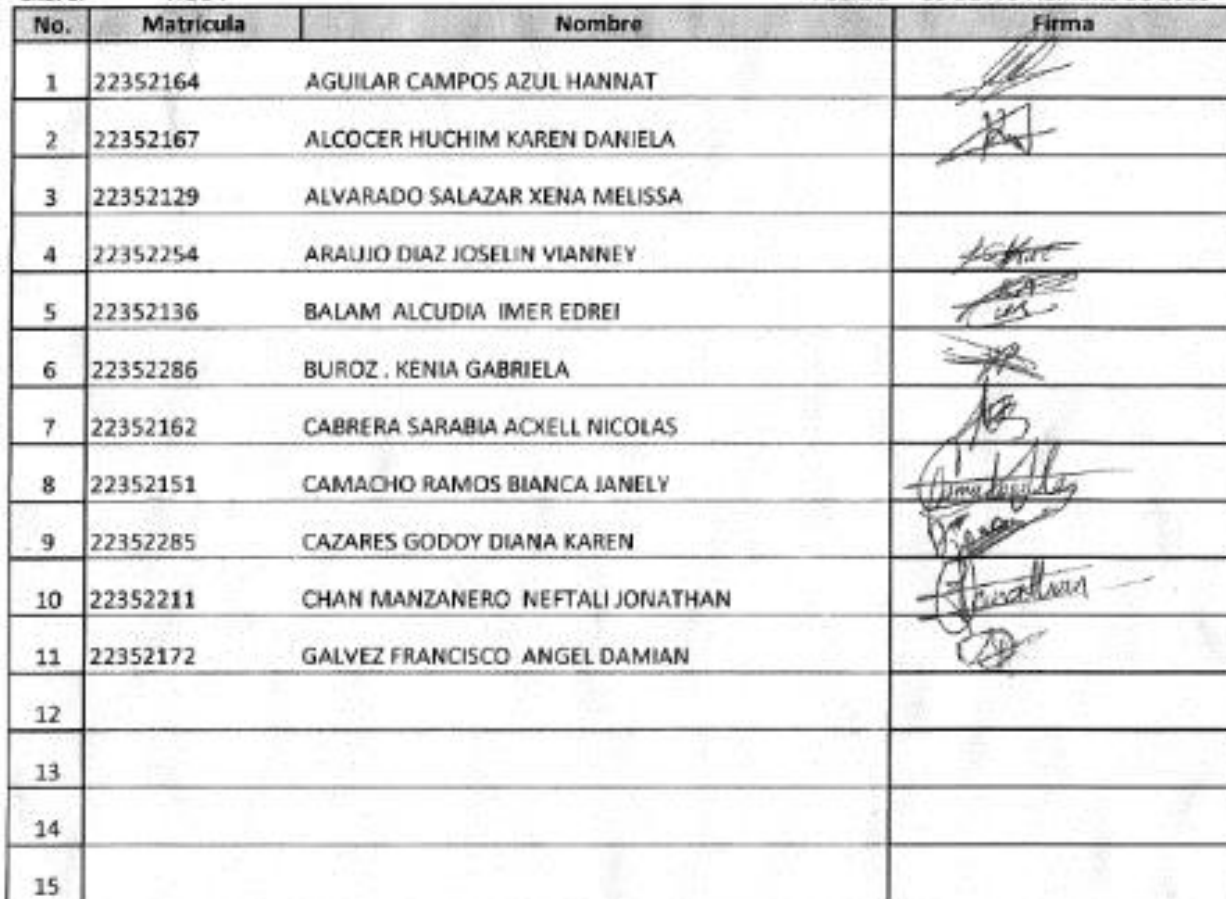 No. Matrícula Nombre Firma
1 22352164 AGUILAR CAMPOS AZUL HANNAT
2 22352167 ALCOCER HUCHIM KAREN DANIELA
3 22352129 ALVARADO SALAZAR XENA MELISSA
4 22352254 ARAUJO DIAZ JOSELIN VIANNEY
5 22352136 BALAM ALCUDIA IMER EDREI
6 22352286 BUROZ . KENIA GABRIELA
7 22352162 CABRERA SARABIA ACXELL NICOLAS
8 22352151 CAMACHO RAMOS BIANCA JANELY
9 22352285 CAZARES GODOY DIANA KAREN
10 22352211 CHAN MANZANERO NEFTALI JONATHAN Jonathan
11 22352172 GALVEZ FRANCISCO ANGEL DAMIAN
12
13
14
15